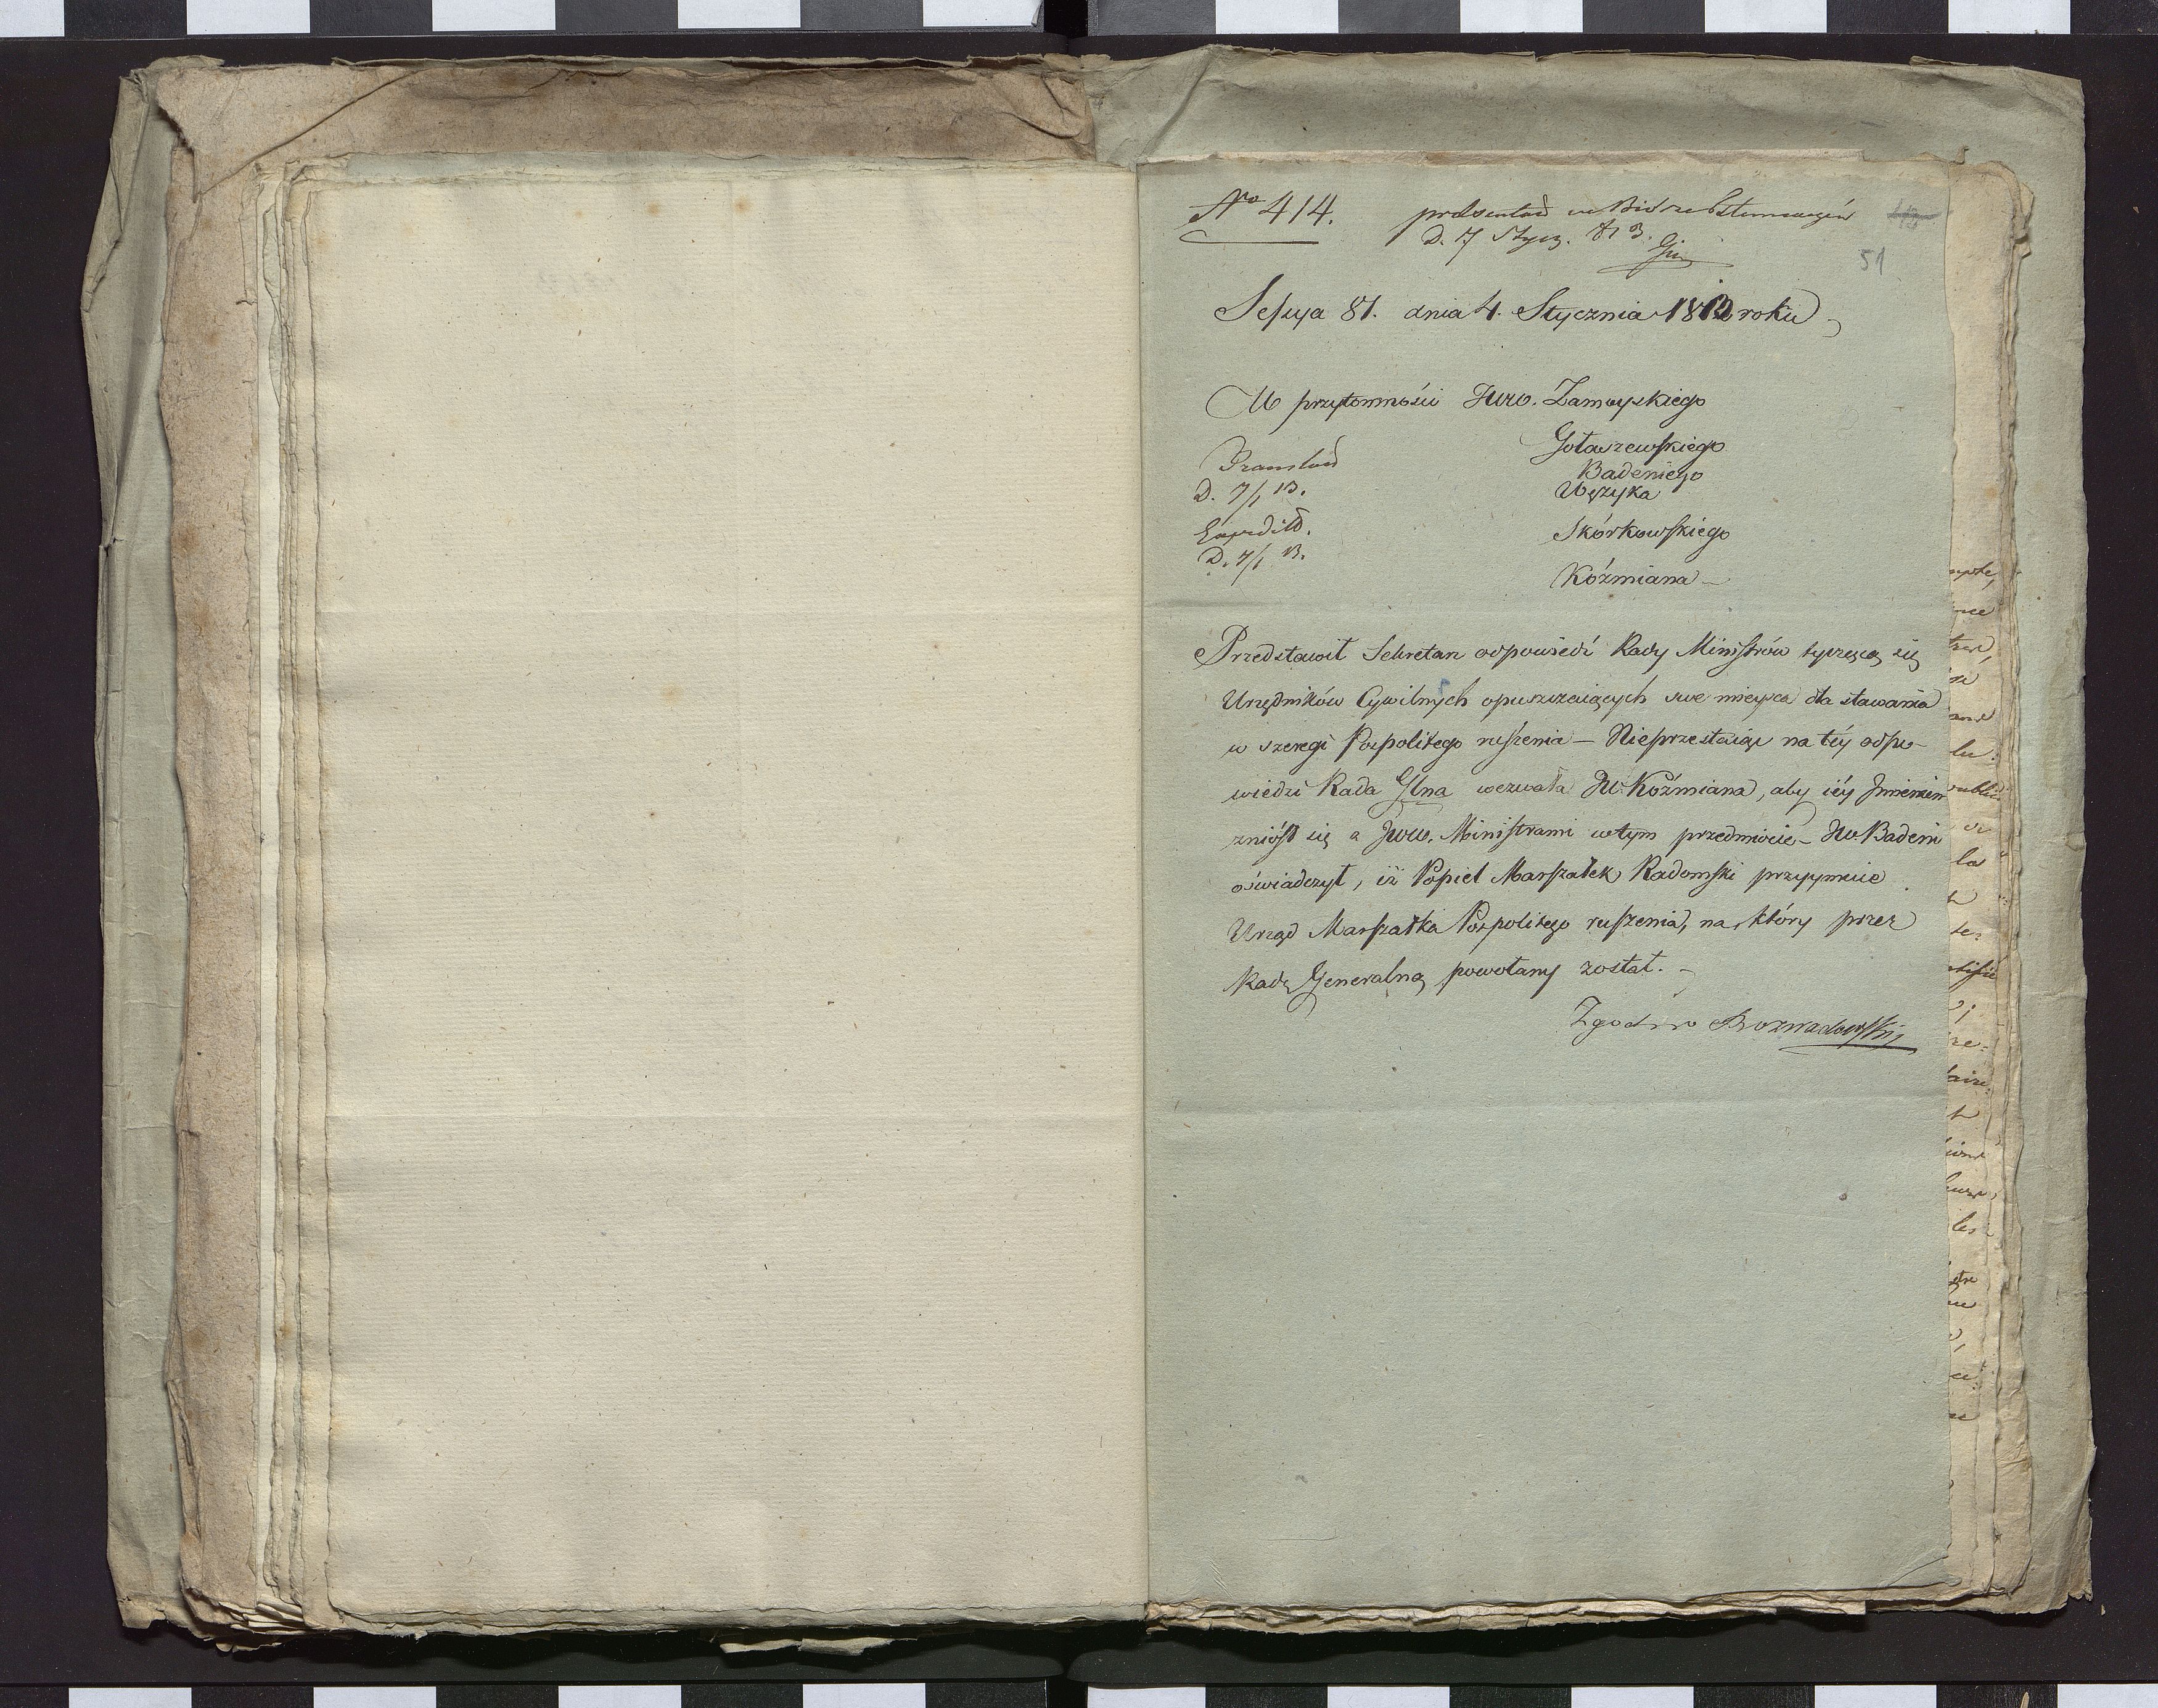 No 414.
præsentat. w Biórze Tłumaczów
D. 7 Stycz. 813.
51
Sessya 81. dnia 4. Stycznia 1813 roku
W przytomności Jww. Zamoyskiego
Gołaszewskiego
Badeniego
Wężyka
Skórkowskiego
Koźmiana
Translat
D. 7/1 13.
Expedit.
D. 7/1 13.
Przedstawił Sekretarz odpowiedź Rady Ministrów tyczącą się
Urzędników Cywilnych opuszczaiących swe mieysca dla stawania
w szeregi Pospolitego ruszenia — Nieprzestaiąc na téy odpo-
wiedzi Rada Glna wezwała JW. Koźmiana, aby iéy Jmieniem
zniósł się z Jww. Ministrami w tym przedmiocie — Jw. Badeni
oświadczył, iż Popiel Marszałek Radomski przyymuie
Urząd Marszałka Pospolitego ruszenia, na który przez
Radę Generalną powołany został. —
Zgodno Rozwadowski